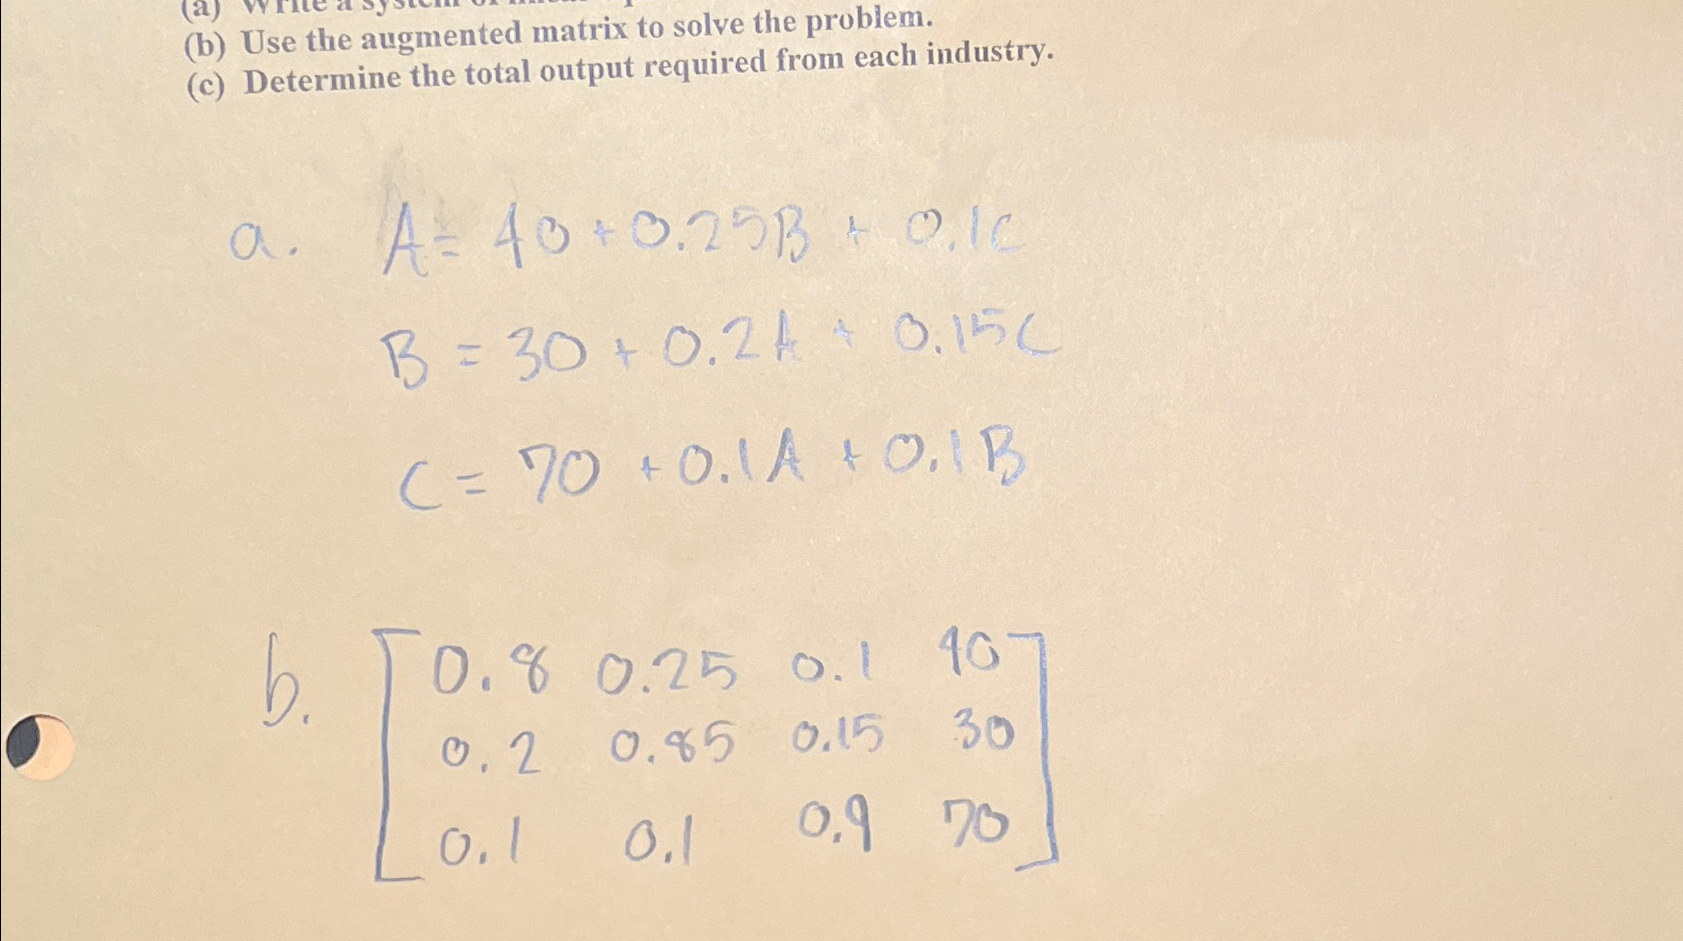 (a) Write a system of
(b) Use the augmented matrix to solve the problem.
(c) Determine the total output required from each industry.
a. A= 40 + 0.25B + 0.1C
B = 30 + 0.2A + 0.15C
C = 70 + 0.1A + 0.1B
b. 0.8 0.25 0.1 40
0.2 0.85 0.15 30
0.1 0.1 0.9 70